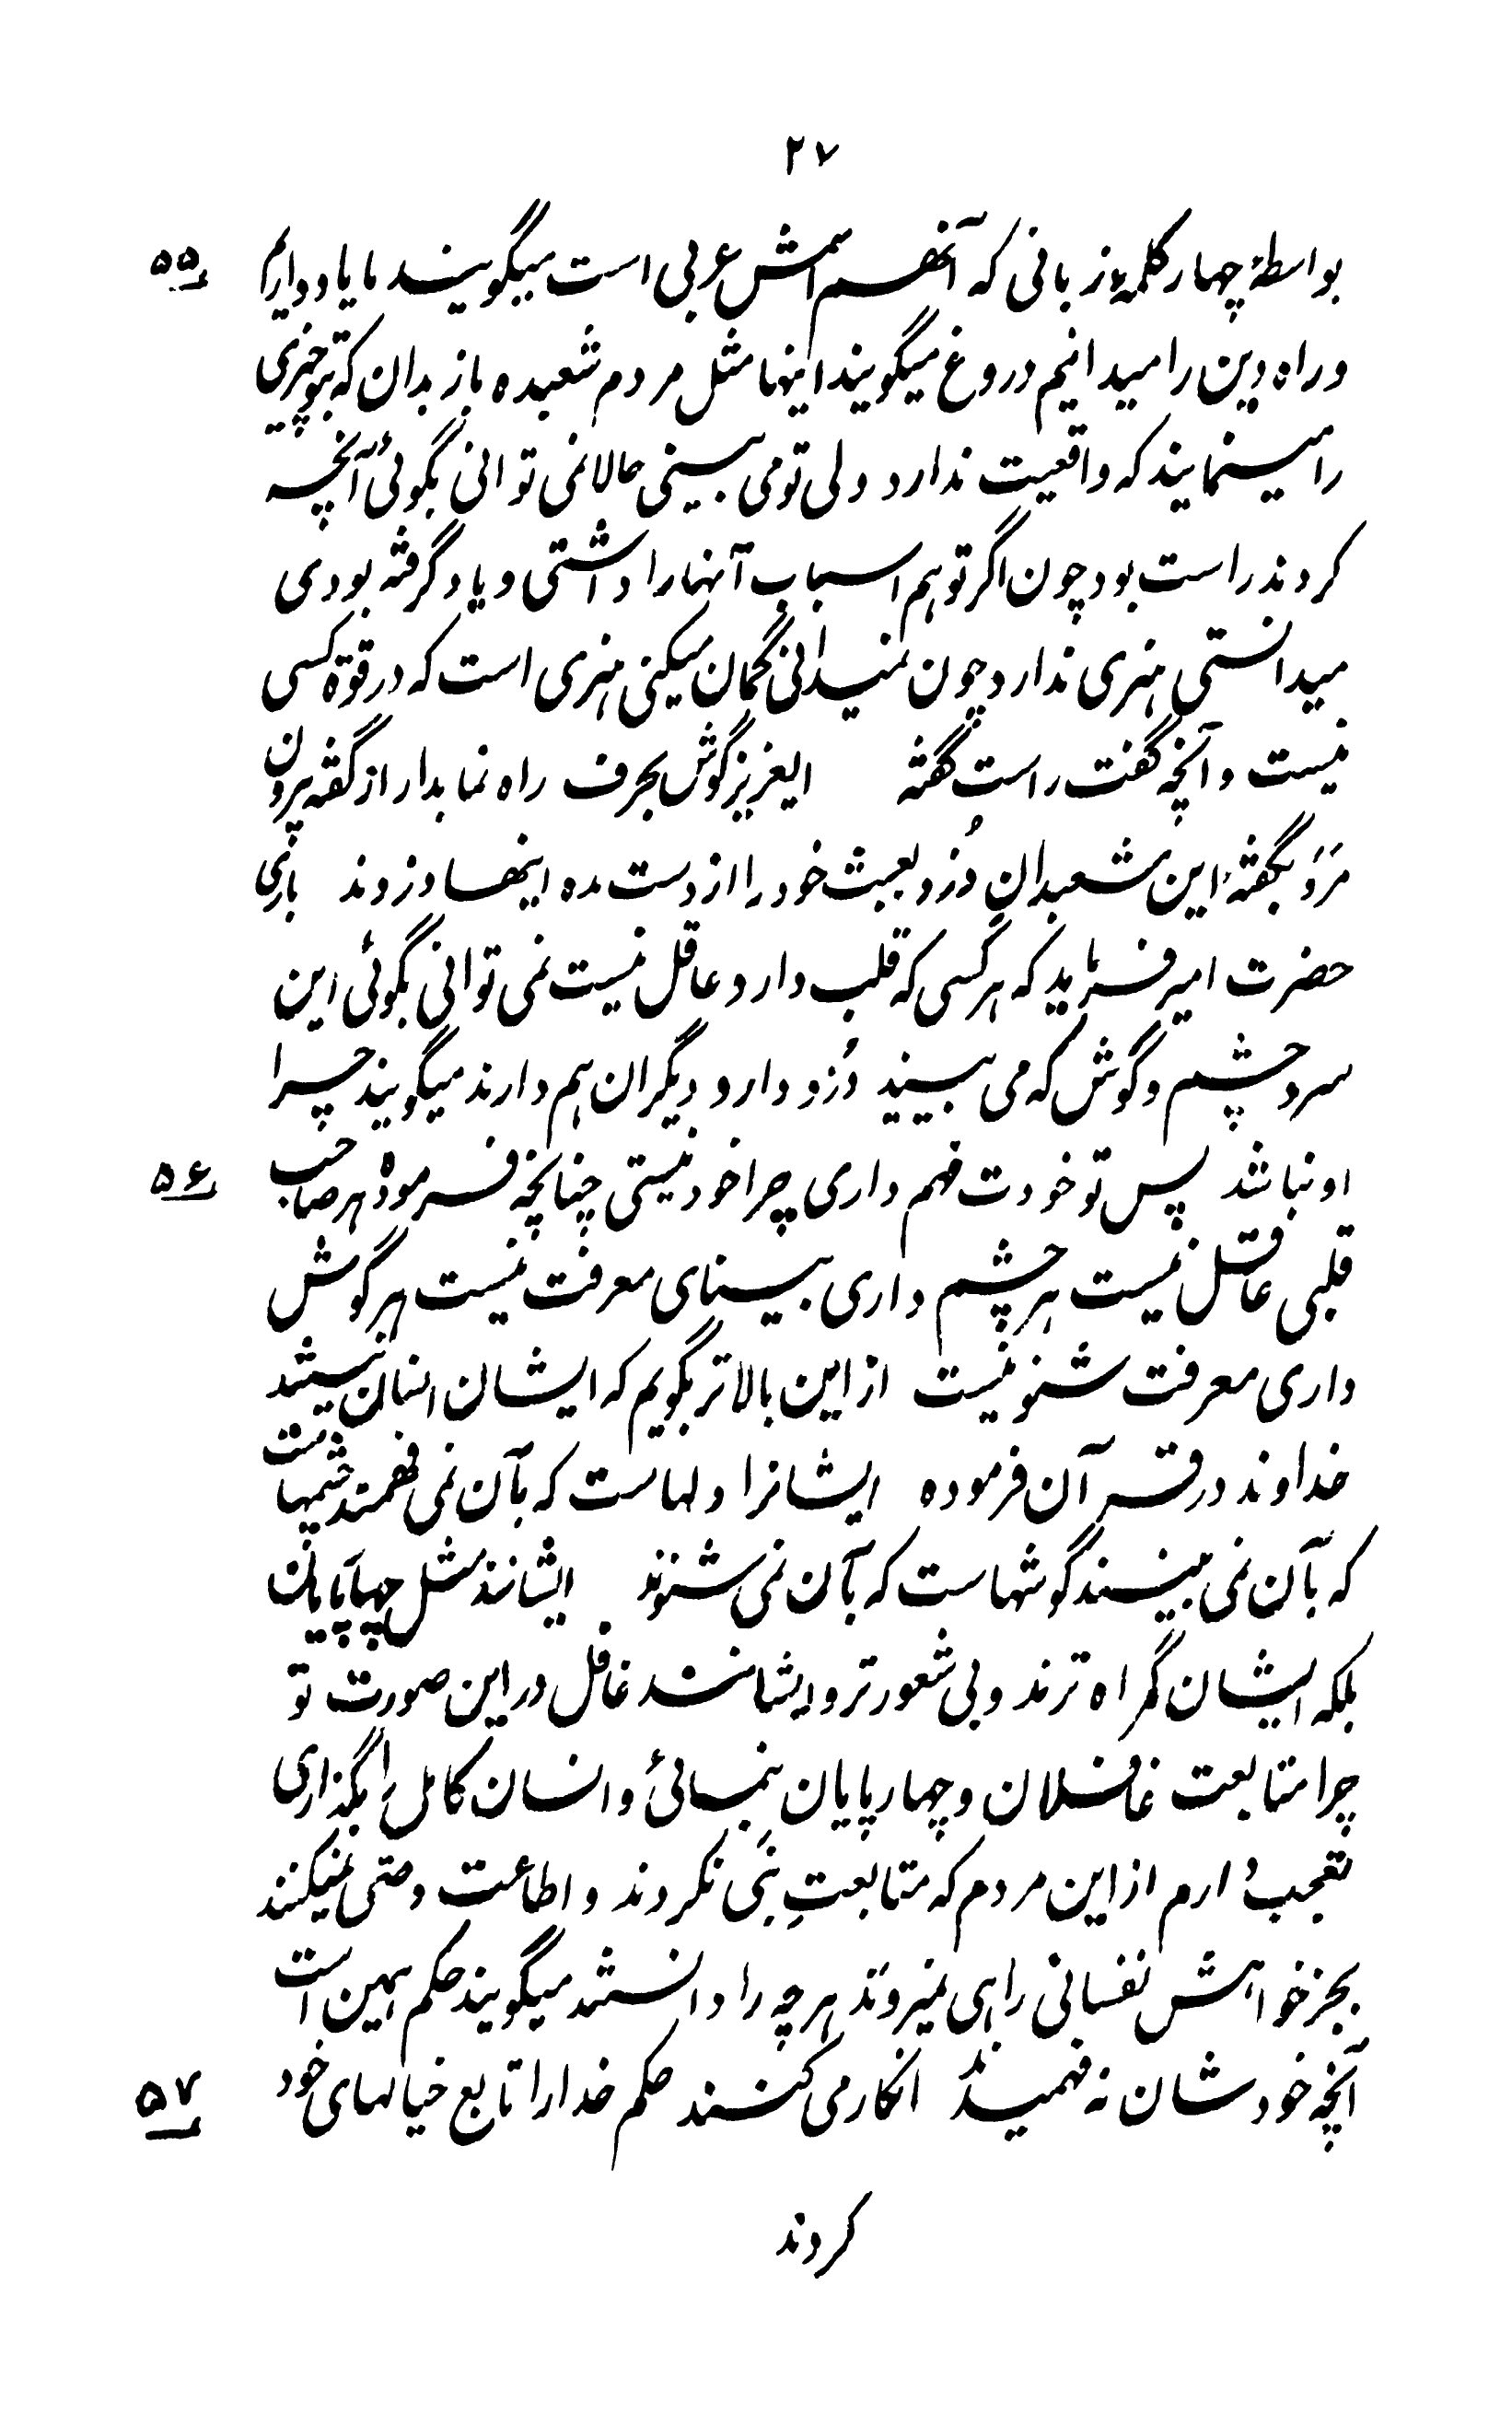 ۲۷
بواسطهٔ چهار کلمهٔ زبانی که آنهم اسمش عربی است میگویند ما یاد داریم ۵۵
و راه دین را میدانیم دروغ میگویند اینها مثل مردم شعبده باز بدان که بتو چیزی
را مینمایند که واقعیت ندارد ولی تو می بینی حالا نمی توانی بگوئی آنچه
کردند راست بود چون اگر تو هم اسباب آنها را داشتی و یاد گرفته بودی
میدانستی هنری ندارد چون نمیدانی گمان میکنی هنری است که در قوهٔ کسی
نیست و آنچه گفت راست گفته ایعزیز گوش بحرف راه نما بدار از گفته بیرون
مَرَو بگفتهٔ این مشعبدانِ دُزد بعبث خود را از دست مده اینها دزدند باری
حضرت امیر فرماید که هر کسی که قلب دارد عاقل نیست نمی توانی بگوئی این
سر و چشم و گوش که می بینید دُزد دارد دیگران هم دارند میگویند چرا
او نباشد پس تو خودت فهم داری چرا خود نیستی چنانچه فرموده هر صاحب ۵۶
قلبی عاقل نیست هر چشم داری بینای معرفت نیست هر گوش
داری معرفت شنو نیست از این بالاتر بگویم که ایشان انسان نیستند
خداوند در قرآن فرموده ایشانرا دلهاست که بآن نمی فهمند چشمهاست
که بآن نمی بینند گوشهاست که بآن نمی شنوند ایشانند مثل چهارپایان
بلکه ایشان گمراه ترند و بی شعورتر و ایشانند غافل در این صورت تو
چرا متابعت غافلان و چهارپایان بنمائی و انسان کامل را بگذاری
تعجب دارم از این مردم که متابعتِ نبی نکردند و اطاعت وصی نمیکنند
بجز خواهش نفسانی راهی نمیروند هر چه را دانستند میگویند حکم همین است
آنچه خودشان نه فهمیدند انکار می کنند حکم خدا را تابع خیالهای خود ۵۷
کردند